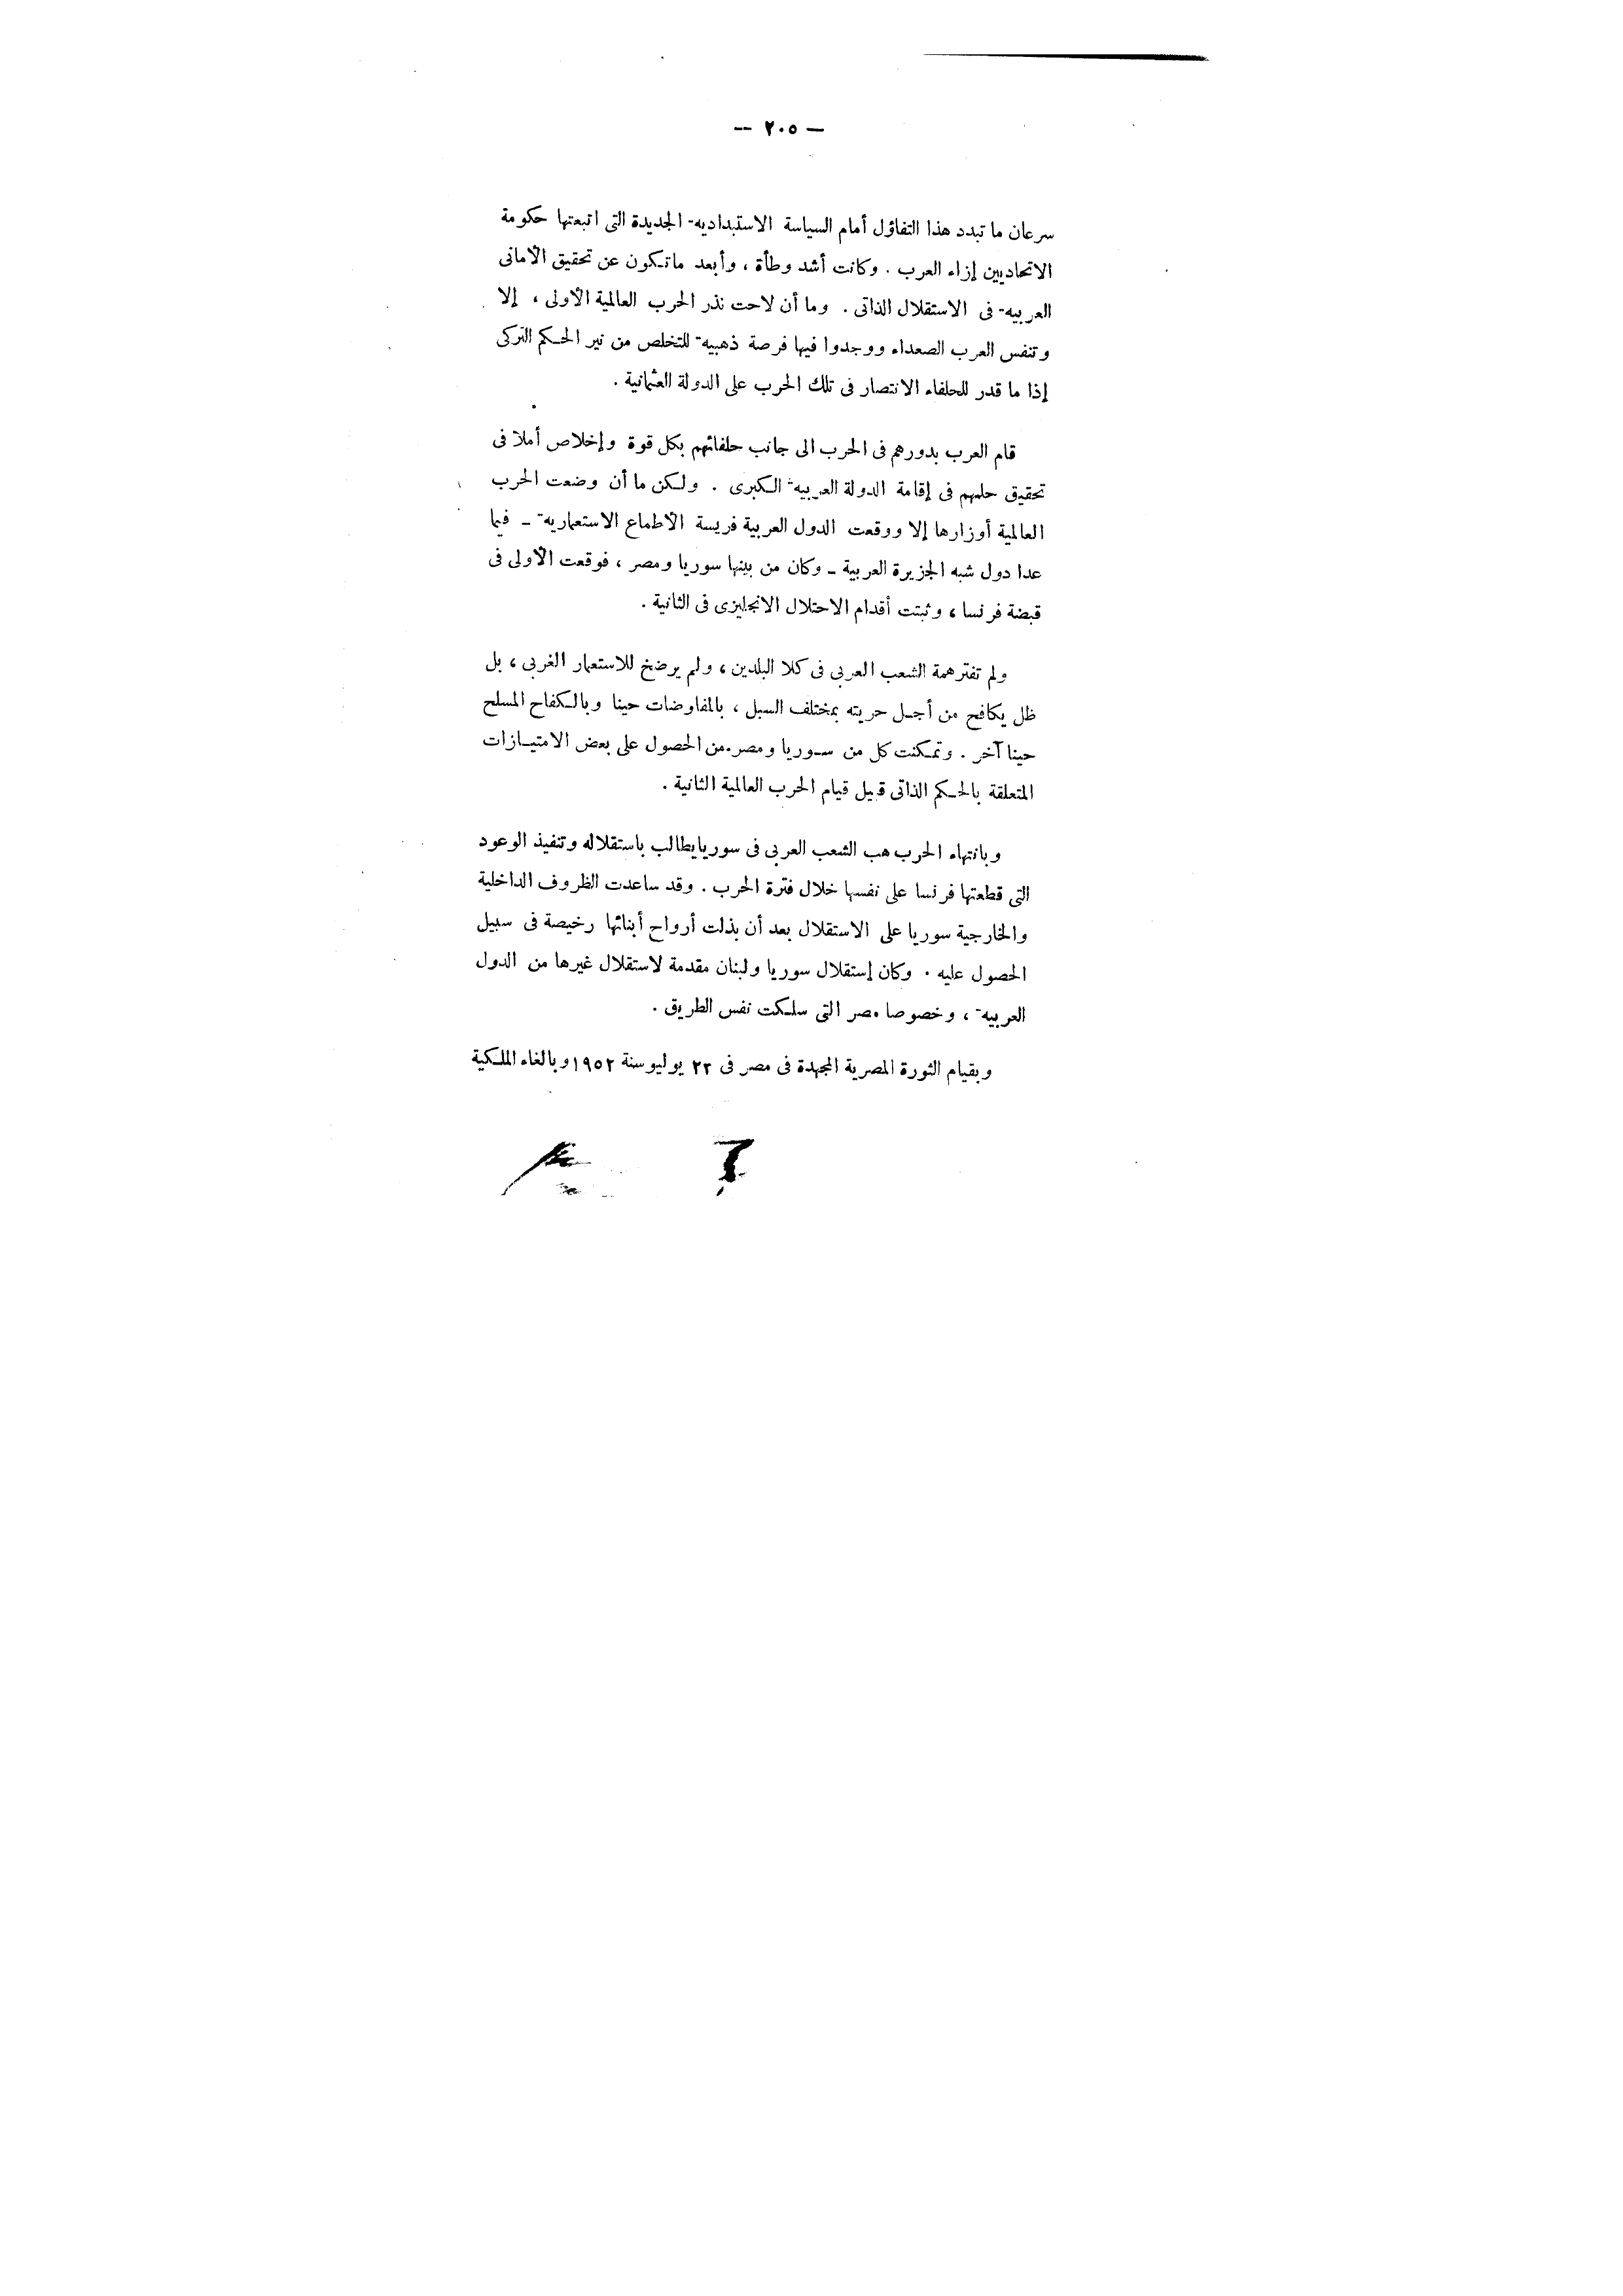 — ٢٠٥ —
سرعان ما تبدد هذا التفاؤل أمام السياسة الاستبدادية الجديدة التى اتبعتها حكومة
الاتحاديين إزاء العرب . وكانت أشد وطأة ، وأبعد ماتكون عن تحقيق الأمانى
العربية فى الاستقلال الذاتى . وما أن لاحت نذر الحرب العالمية الأولى ، إلا
وتنفس العرب الصعداء ووجدوا فيها فرصة ذهبية للتخلص من نير الحكم التركى
إذا ما قدر للحلفاء الانتصار فى تلك الحرب على الدولة العثمانية .
قام العرب بدورهم فى الحرب الى جانب حلفائهم بكل قوة وإخلاص أملا فى
تحقيق حلمهم فى إقامة الدولة العربية الكبرى . ولكن ما أن وضعت الحرب
العالمية أوزارها إلا ووقعت الدول العربية فريسة الأطماع الاستعمارية – فيما
عدا دول شبه الجزيرة العربية – وكان من بينها سوريا ومصر ، فوقعت الأولى فى
قبضة فرنسا ، وثبتت أقدام الاحتلال الانجليزى فى الثانية .
ولم تفتر همة الشعب العربى فى كلا البلدين ، ولم يرضخ للاستعمار الغربى ، بل
ظل يكافح من أجل حريته بمختلف السبل ، بالمفاوضات حينا وبالكفاح المسلح
حينا آخر . وتمكنت كل من سوريا ومصر من الحصول على بعض الامتيازات
المتعلقة بالحكم الذاتى قبيل قيام الحرب العالمية الثانية .
وبانتهاء الحرب هب الشعب العربى فى سوريا يطالب باستقلاله وتنفيذ الوعود
التى قطعتها فرنسا على نفسها خلال فترة الحرب . وقد ساعدت الظروف الداخلية
والخارجية سوريا على الاستقلال بعد أن بذلت أرواح أبنائها رخيصة فى سبيل
الحصول عليه . وكان إستقلال سوريا ولبنان مقدمة لاستقلال غيرها من الدول
العربية ، وخصوصا مصر التى سلكت نفس الطريق .
وبقيام الثورة المصرية المجهدة فى مصر فى ٢٣ يوليو سنة ١٩٥٢ وبالغاء الملكية